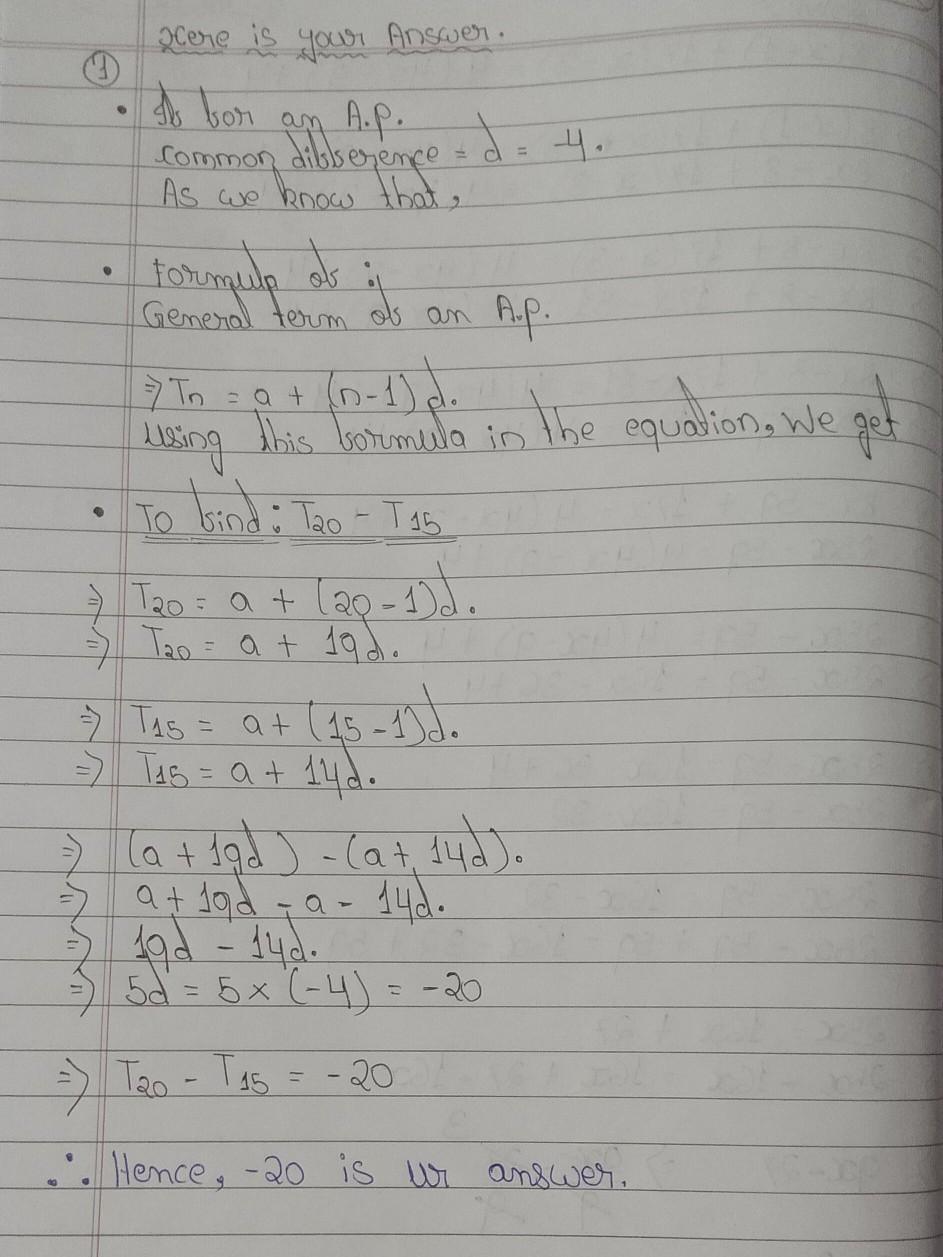 Here is your Answer.
①
• If for an A.P.
common difference = d = -4.
As we know that,
• formula of :
General term of an A.P.
⇒ Tn = a + (n-1)d.
Using this formula in the equation, we get
• To find : T20 - T15
⇒ T20 = a + (20-1)d.
⇒ T20 = a + 19d.
⇒ T15 = a + (15-1)d.
⇒ T15 = a + 14d.
⇒ (a + 19d) - (a + 14d).
⇒ a + 19d - a - 14d.
⇒ 19d - 14d.
⇒ 5d = 5 × (-4) = -20
⇒ T20 - T15 = -20
∴ Hence, -20 is ur answer.